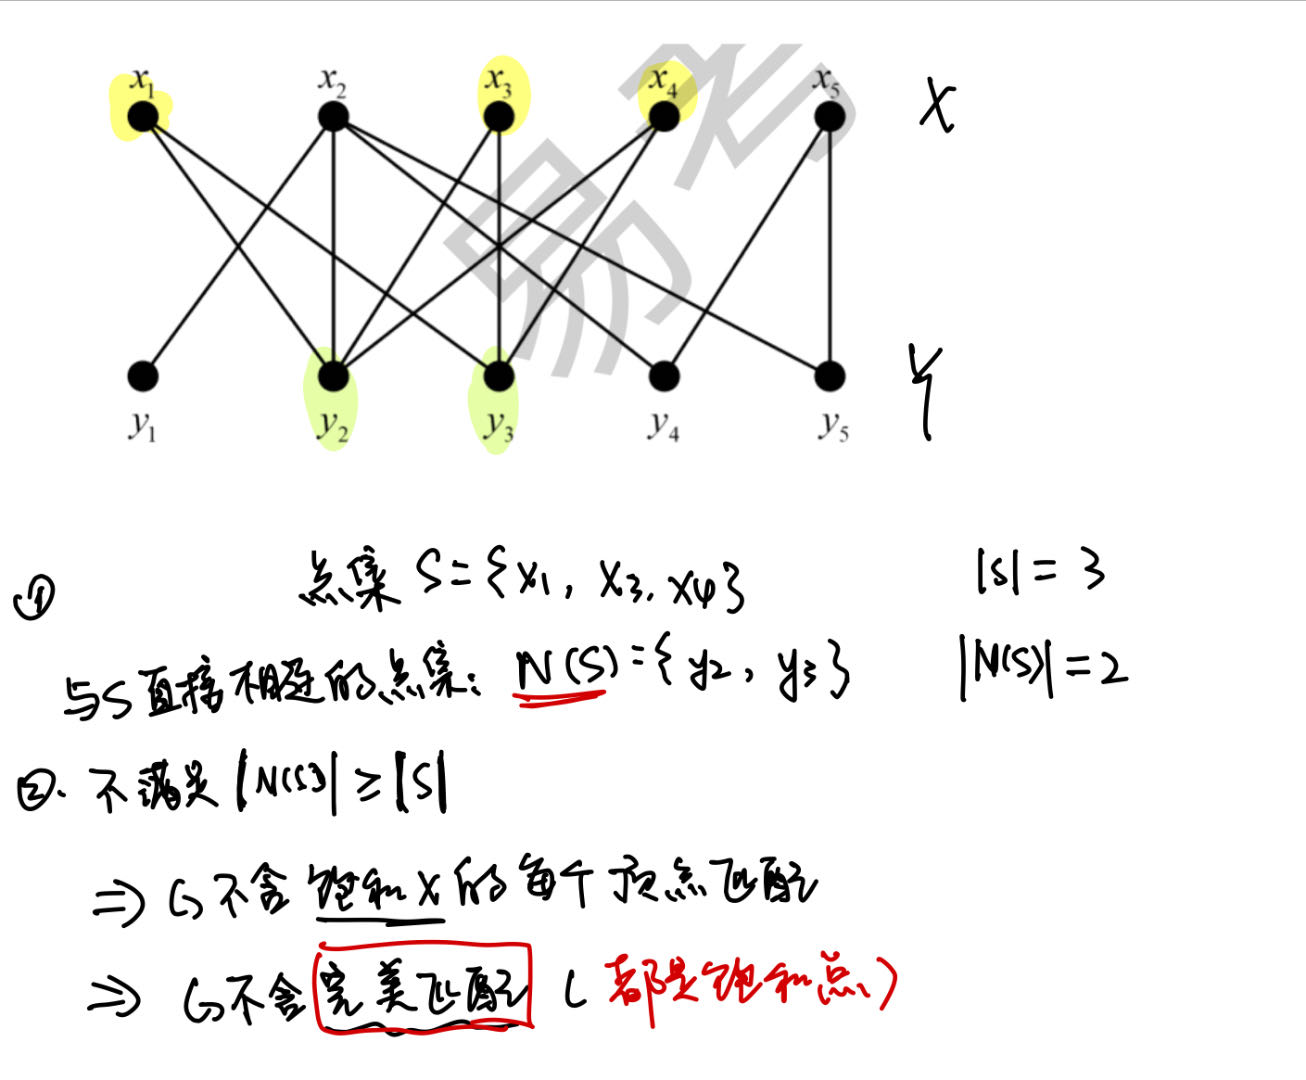 x₁ x₂ x₃ x₄ x₅ X
y₁ y₂ y₃ y₄ y₅ Y
易考
① 点集 S={x₁, x₃, x₄} |S|=3
与S直接相连的点集: N(S)={y₂, y₃} |N(S)|=2
②. 不满足 |N(S)| ≥ |S|
⇒ G不含 饱和X 的每个顶点匹配
⇒ G不含 完美匹配 (都是饱和点)